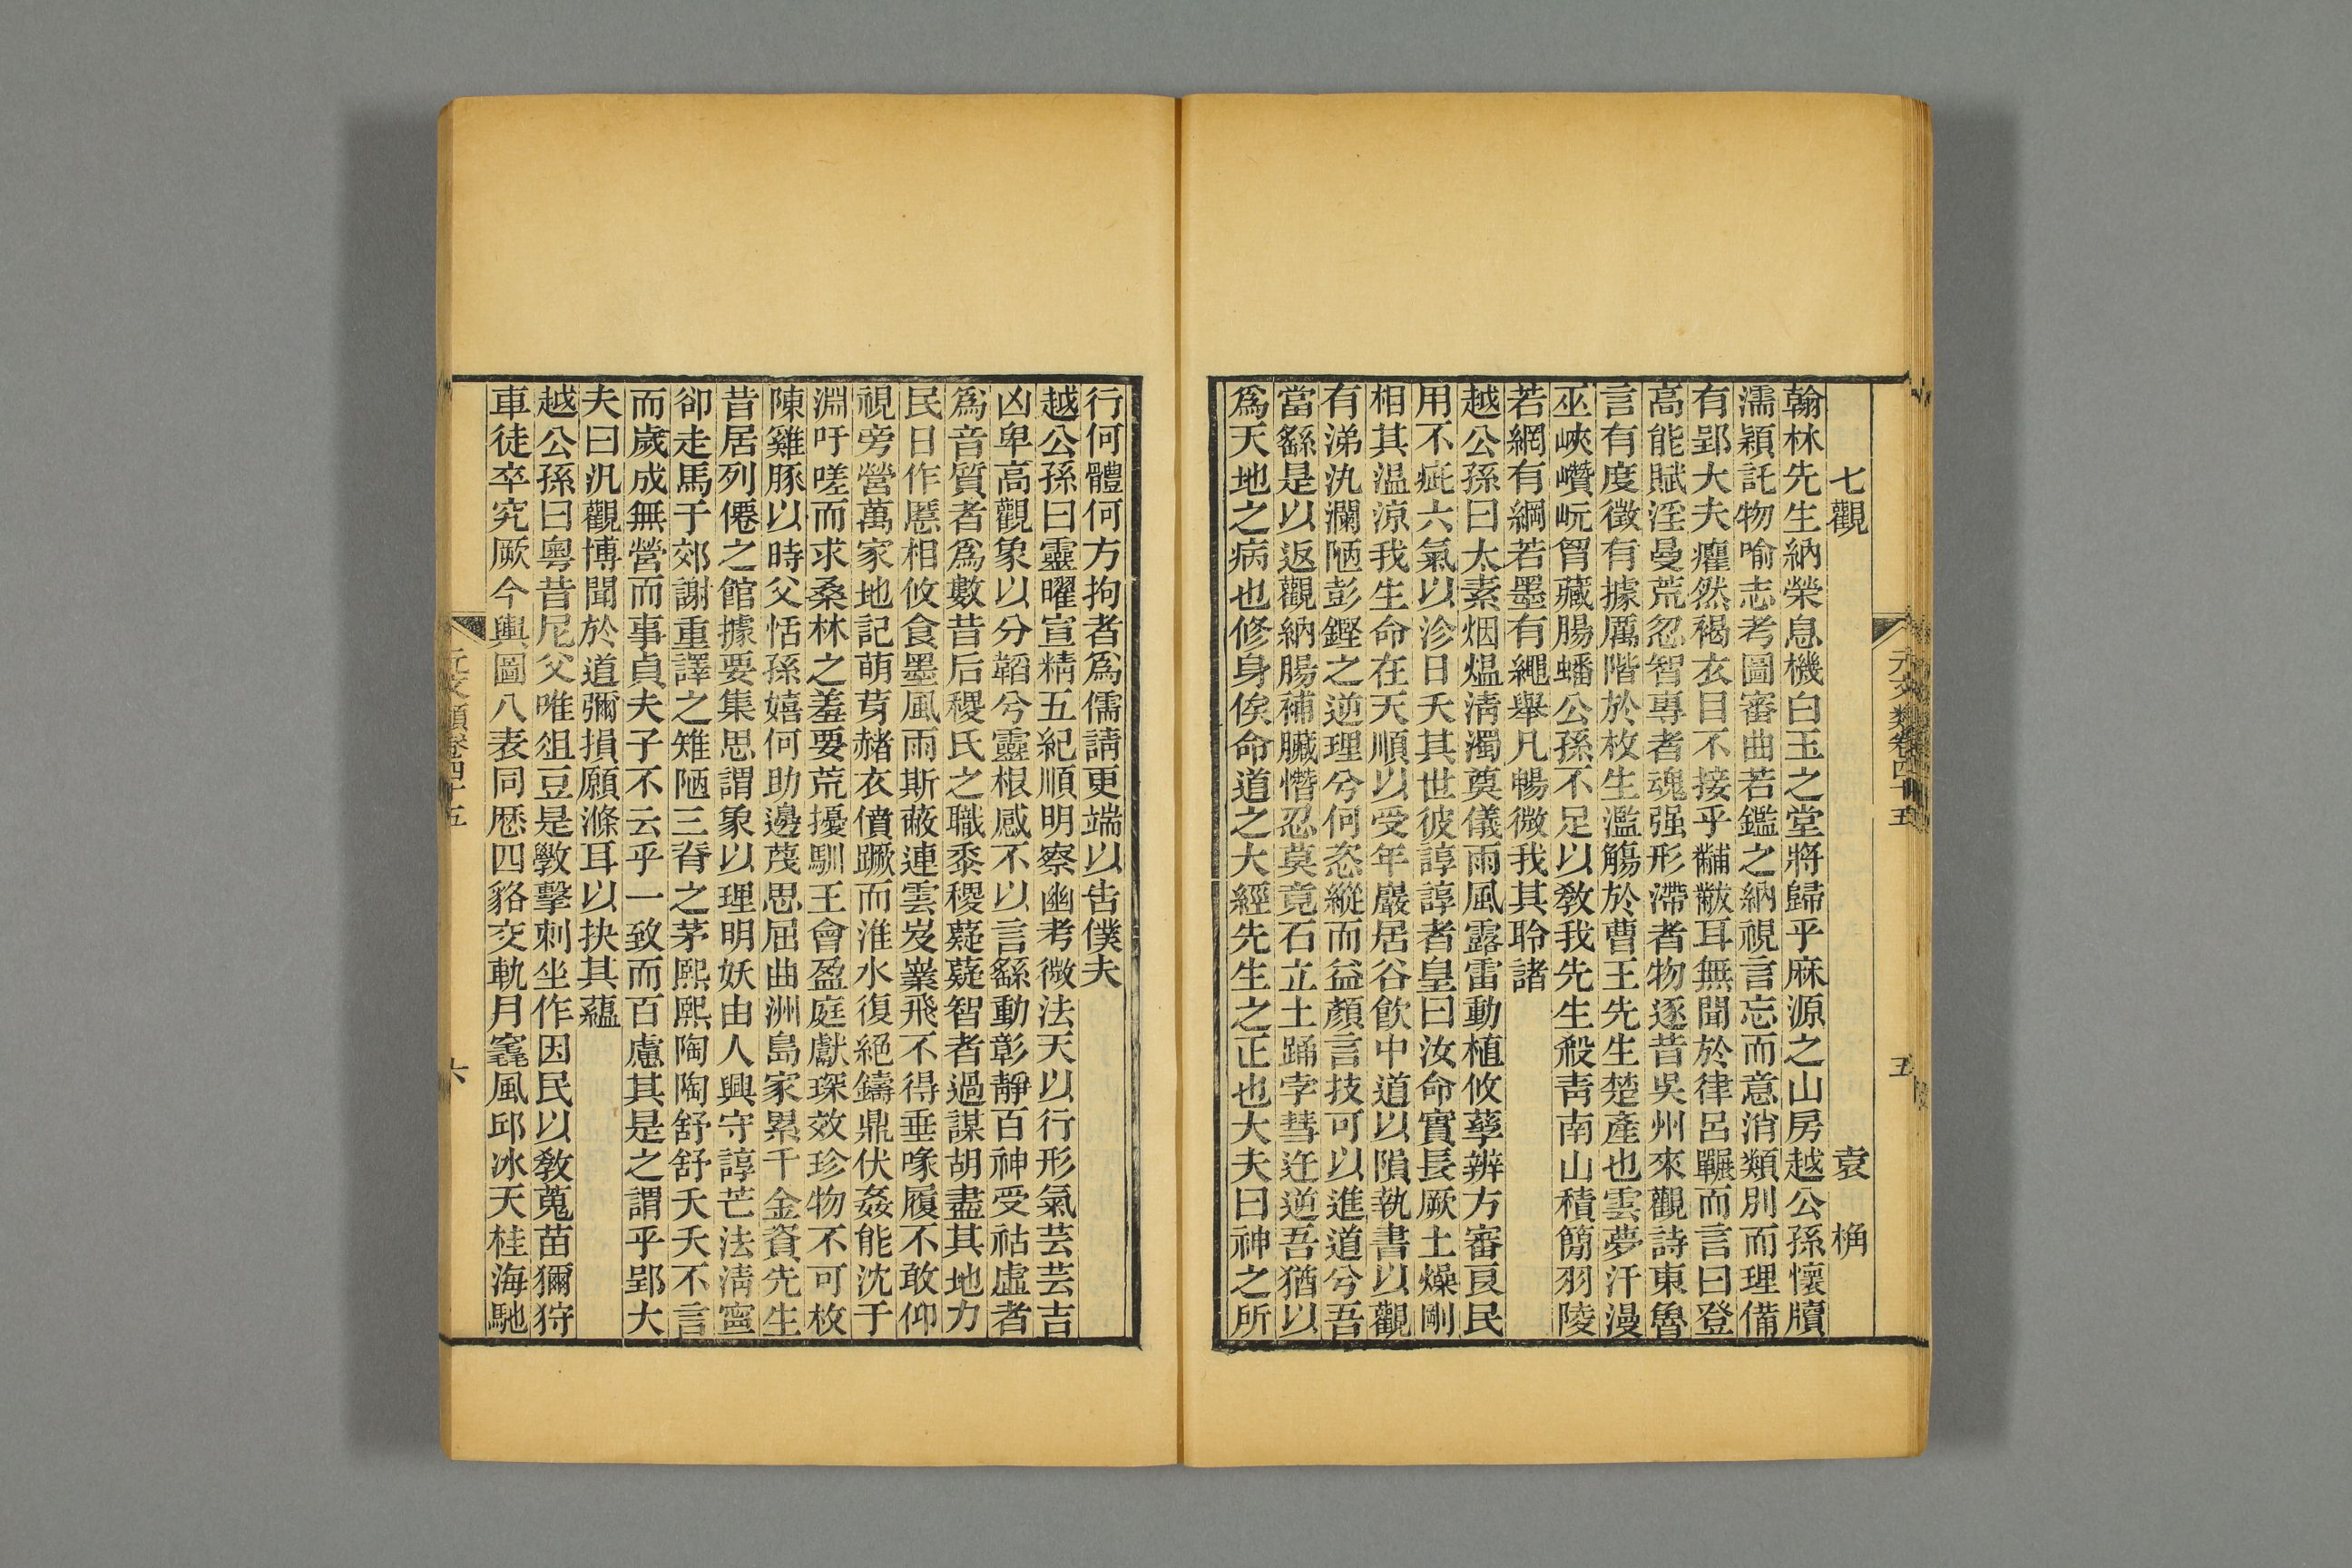 元文類卷四十五
五
七觀 袁桷
翰林先生納榮息機白玉之堂將歸乎麻源之山房越公孫懷牘
濡穎託物喻志考圖審曲若鑑之納視言忘而意消類別而理備
有郢大夫癯然褐衣目不接乎黼黻耳無聞於律呂冁而言曰登
高能賦淫曼荒忽智專者魂强形滯者物逐昔吳州來觀詩東魯
言有度徵有據厲階於枚生濫觴於曹王先生楚產也雲夢汗漫
巫峽巑岏胷藏腸蟠公孫不足以敎我先生殺靑南山積簡羽陵
若網有綱若墨有繩舉凡暢微我其聆諸
越公孫曰太素烟熅淸濁奠儀雨風露雷動植攸孳辨方審良民
用不疵六氣以沴日夭其世彼諄諄者皇曰汝命實長厥土燥剛
相其温涼我生命在天順以受年巖居谷飮中道以隕執書以觀
有涕汍瀾陋彭鏗之逆理兮何恣縱而益顏言技可以進道兮吾
當繇是以返觀納腸補臟憯忍莫竟石立土踊孛彗迕逆吾猶以
爲天地之病也修身俟命道之大經先生之正也大夫曰神之所
行何體何方拘者爲儒請更端以告僕夫
越公孫曰靈曜宣精五紀順明察幽考微法天以行形氣芸芸吉
凶卑高觀象以分韜兮靈根感不以言繇動彰靜百神受祜虛者
爲音質者爲數昔后稷氏之職黍稷薿薿智者過謀胡盡其地力
民日作慝相攸食墨風雨斯蔽連雲岌嶪飛不得垂喙履不敢仰
視旁營萬家地記萌芽赭衣僨蹶而淮水復絕鑄鼎伏姦能沈于
淵吁嗟而求桑林之羞要荒擾馴王會盈庭獻琛效珍物不可枚
陳雞豚以時父恬孫嬉何助邊茂思屈曲洲島家累千金資先生
昔居列僊之館據要集思謂象以理明妖由人興守諄芒法淸寧
卻走馬于郊謝重譯之雉陋三脊之茅熙熙陶陶舒舒夭夭不言
而歲成無營而事貞夫子不云乎一致而百慮其是之謂乎郢大
夫曰汎觀博聞於道彌損願滌耳以抉其蘊
越公孫曰粤昔尼父唯俎豆是斆擊刺坐作因民以敎蒐苗獮狩
車徒卒究厥今輿圖八表同厯四貉交軌月竁風邱冰天桂海馳
元文類卷四十五
六